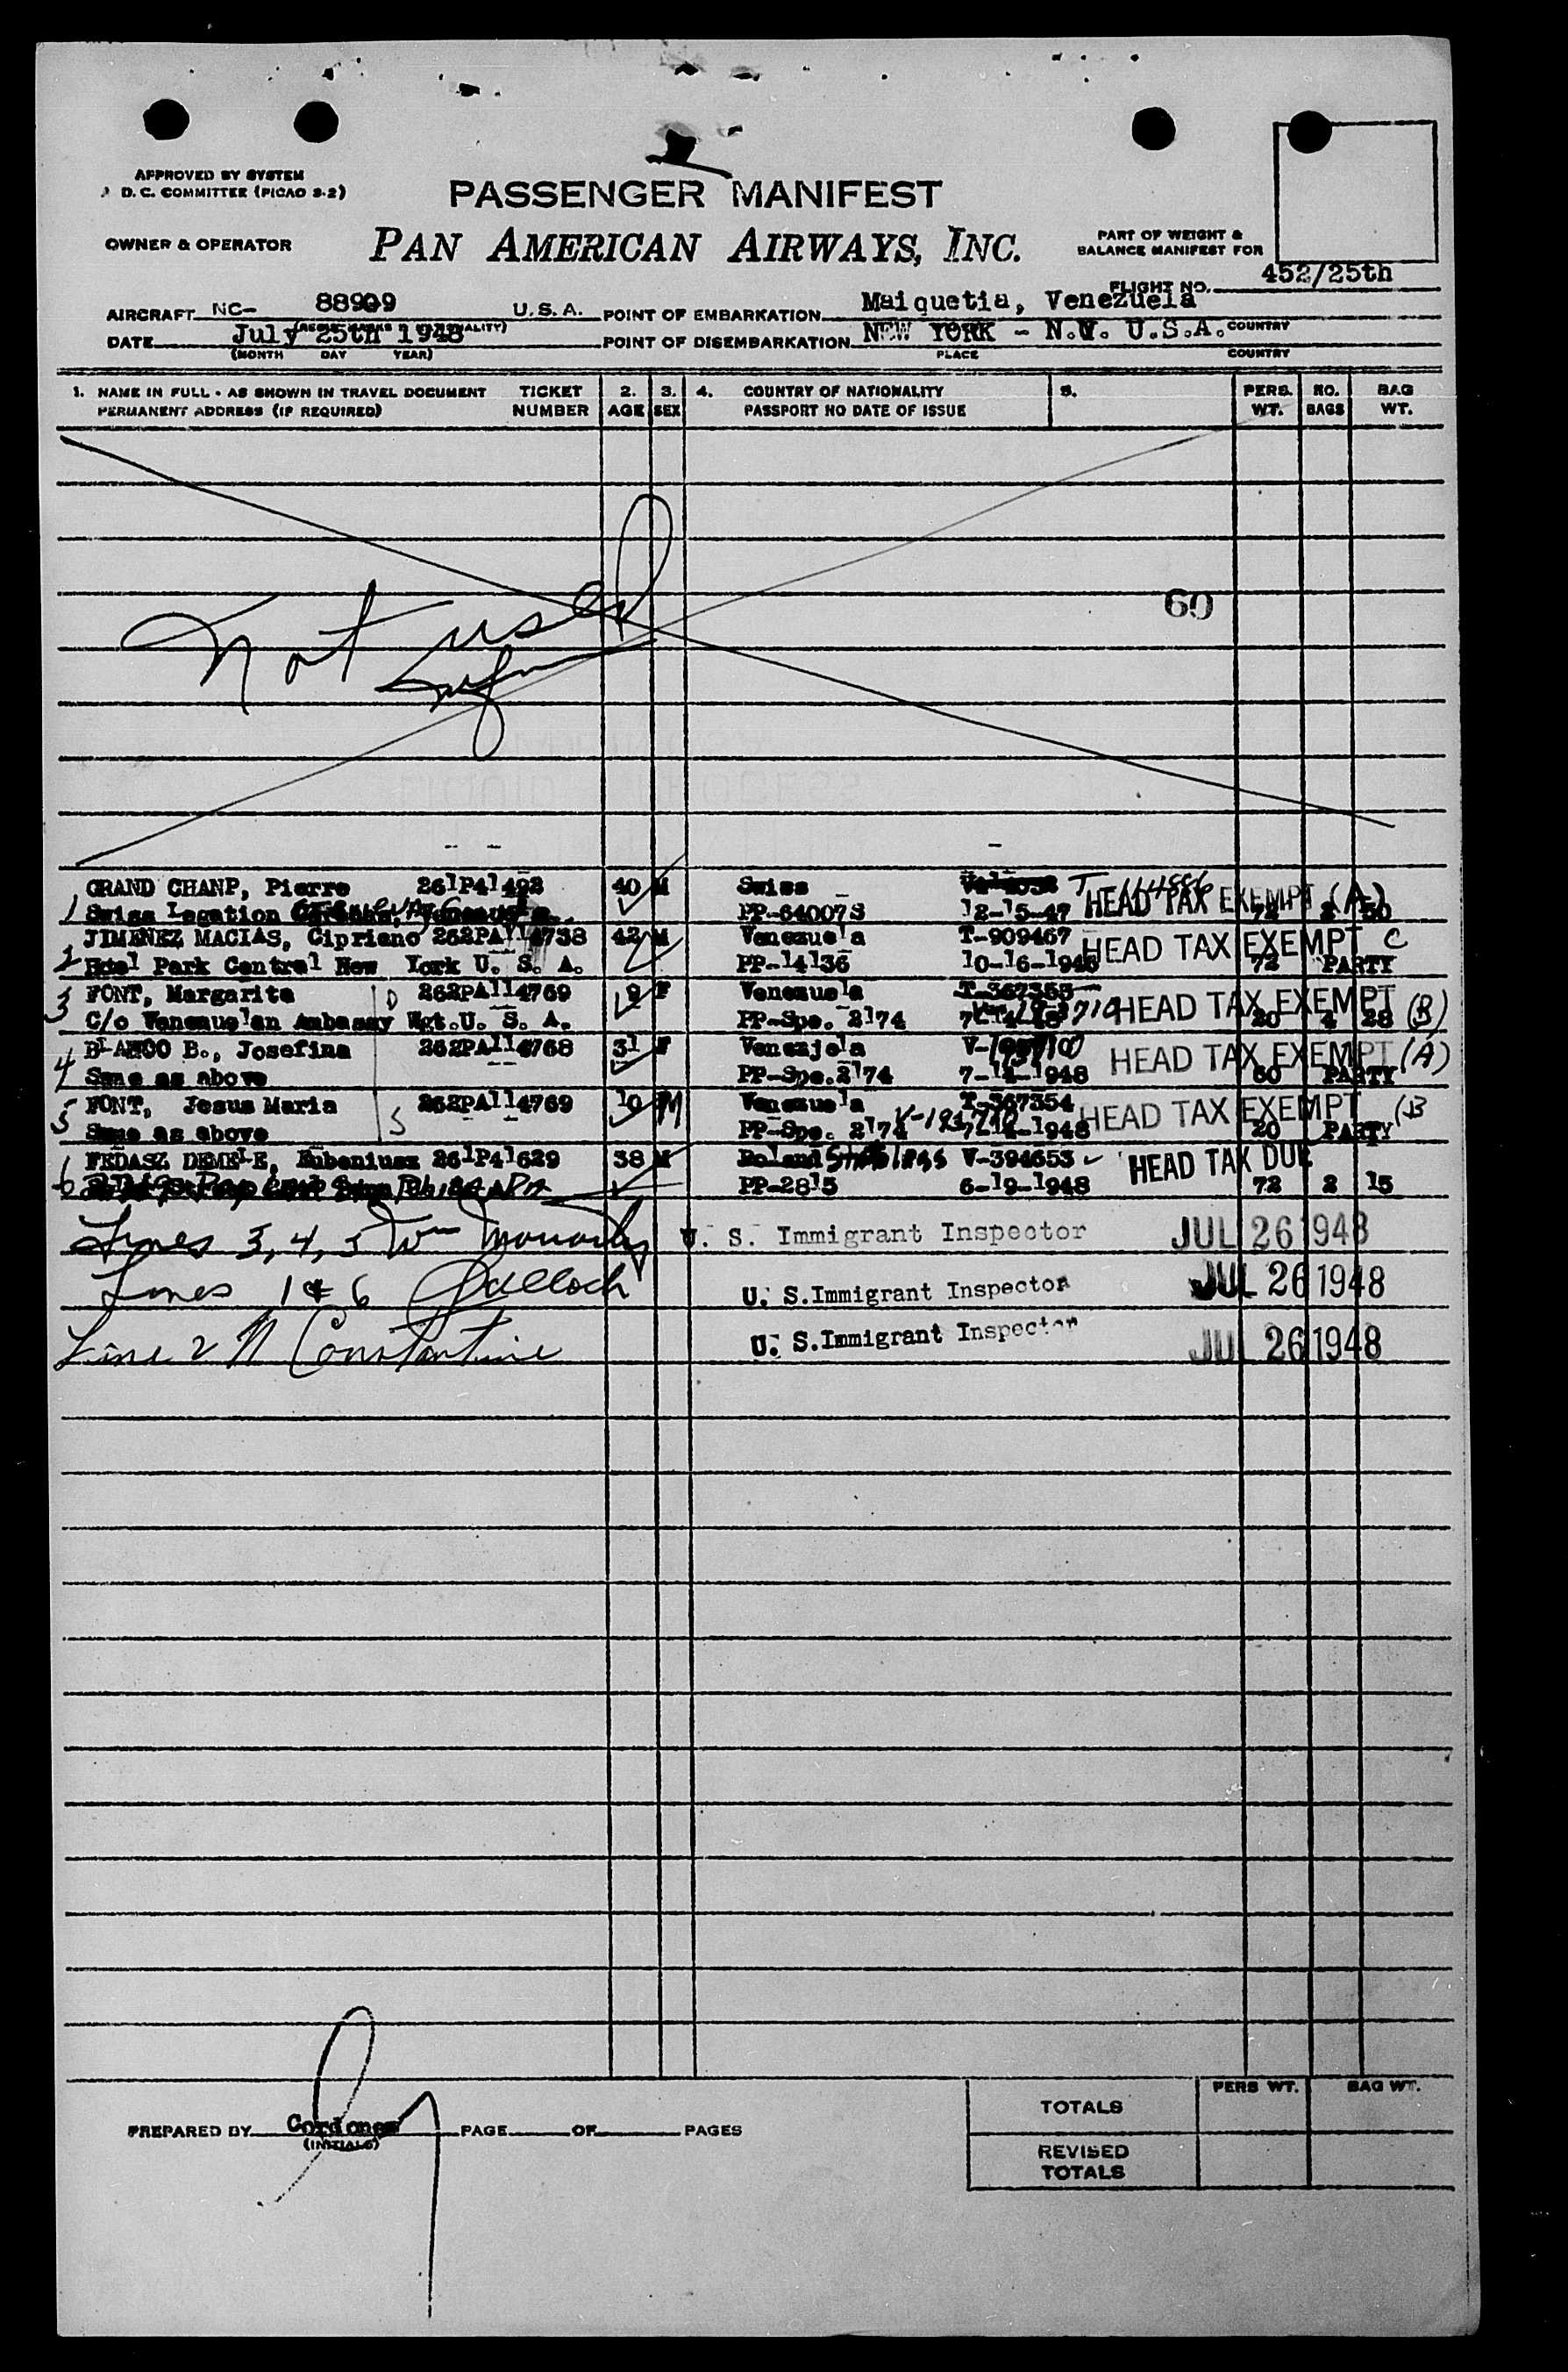 APPROVED BY SYSTEM
D. C. COMMITTEE (PICAO S-2)
PASSENGER MANIFEST
OWNER & OPERATOR
PAN AMERICAN AIRWAYS, INC.
PART OF WEIGHT &
BALANCE MANIFEST FOR
FLIGHT NO. 452/25th
AIRCRAFT NC- 88909 U.S.A. POINT OF EMBARKATION Maiquetia, Venezuela
DATE July 25th 1948 POINT OF DISEMBARKATION NEW YORK - N.Y. U.S.A. COUNTRY
(MONTH DAY YEAR) PLACE COUNTRY
1. NAME IN FULL - AS SHOWN IN TRAVEL DOCUMENT TICKET 2. 3. 4. COUNTRY OF NATIONALITY 5. PERS. NO. BAG
PERMANENT ADDRESS (IF REQUIRED) NUMBER AGE SEX PASSPORT NO DATE OF ISSUE WT. BAGS WT.
60
Not used
GRAND CHANP, Pierre 261P41492 40 M Swiss
1 Swiss Legation PP-64007S 12-15-47 HEAD TAX EXEMPT (A)
JIMENEZ MACIAS, Cipriano 262PA114738 42 M Venezuela T-909467 HEAD TAX EXEMPT C
2 Hotel Park Central New York U. S. A. PP-14136 10-16-1948 72 PARTY
3 FONT, Margarita D 262PA114769 9 F Venezuela T-367355 HEAD TAX EXEMPT (B)
C/o Venezuelan Ambassy Wgt.U. S. A. PP-Spe. 2174 20 4 28
BLANCO B., Josefina 262PA114768 31 F Venezjela HEAD TAX EXEMPT (A)
4 Same as above PP-Spe.2174 7-14-1948 60 PARTY
5 FONT, Jesus Maria S 262PA114769 10 M Venezuela T-367354 HEAD TAX EXEMPT (B
Same as above PP-Spe. 2174 7-14-1948 20 PARTY
6 FEDASZ DEMELE, Eubeniusz 261P41629 38 M Poland Stateless V-394653 HEAD TAX DUE
PP-2815 6-19-1948 72 2 15
Lines 3, 4, 5 Wm U. S. Immigrant Inspector JUL 26 1948
Lines 1 & 6 U. S.Immigrant Inspector JUL 26 1948
Line 2 N Constantine U. S.Immigrant Inspector JUL 26 1948
PERS WT. BAG WT.
TOTALS
PREPARED BY Cordones PAGE OF PAGES
(INITIALS)
REVISED
TOTALS